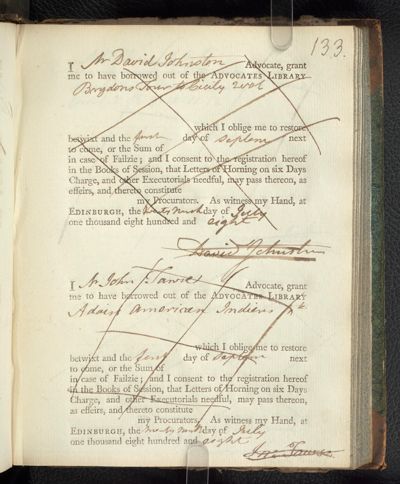 133.
I Mr David Johnston Advocate, grant
me to have borrowed out of the ADVOCATES LIBRARY
Brydons Tour to Sicily 2 vol
which I oblige me to restore
betwixt and the first day of Septem next
to come, or the Sum of
in case of Failzie; and I consent to the registration hereof
in the Books of Session, that Letters of Horning on six Days
Charge, and other Executorials needful, may pass thereon, as
effeirs, and thereto constitute
my Procurators. As witness my Hand, at
EDINBURGH, the day of July
one thousand eight hundred and eight
David Johnston
I Mr John Tawse Advocate, grant
me to have borrowed out of the ADVOCATES LIBRARY
Adair American Indians
which I oblige me to restore
betwixt and the first day of Septem next
to come, or the Sum of
in case of Failzie; and I consent to the registration hereof
in the Books of Session, that Letters of Horning on six Days
Charge, and other Executorials needful, may pass thereon,
as effeirs, and thereto constitute
my Procurators. As witness my Hand, at
EDINBURGH, the day of July
one thousand eight hundred and eight
Tawse